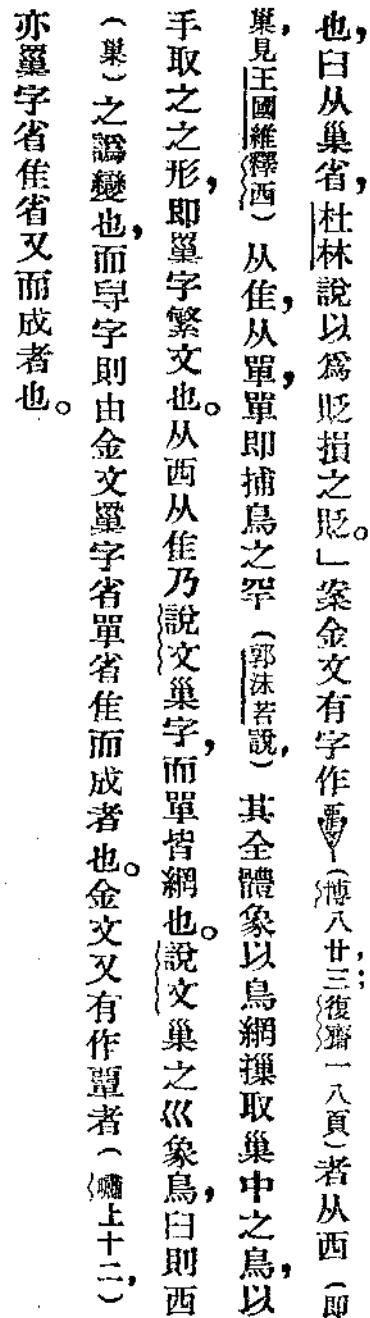 也，𦥑从巢省，杜林說以爲貶損之貶。」案金文有字作（博八廿三；復齋一八頁）者从西（即
巢，見王國維釋西）从隹，从單，單即捕鳥之罕（郭沫若說，）其全體象以鳥網摷取巢中之鳥，以
手取之之形，即𦋹字繁文也。从西从隹乃說文巢字，而單皆網也。說文巢之巛象鳥，𦥑則西
（巢）之譌變也，而𡬠字則由金文字省單省隹而成者也。金文又有作者（嘯上十二，）
亦字省隹省又而成者也。